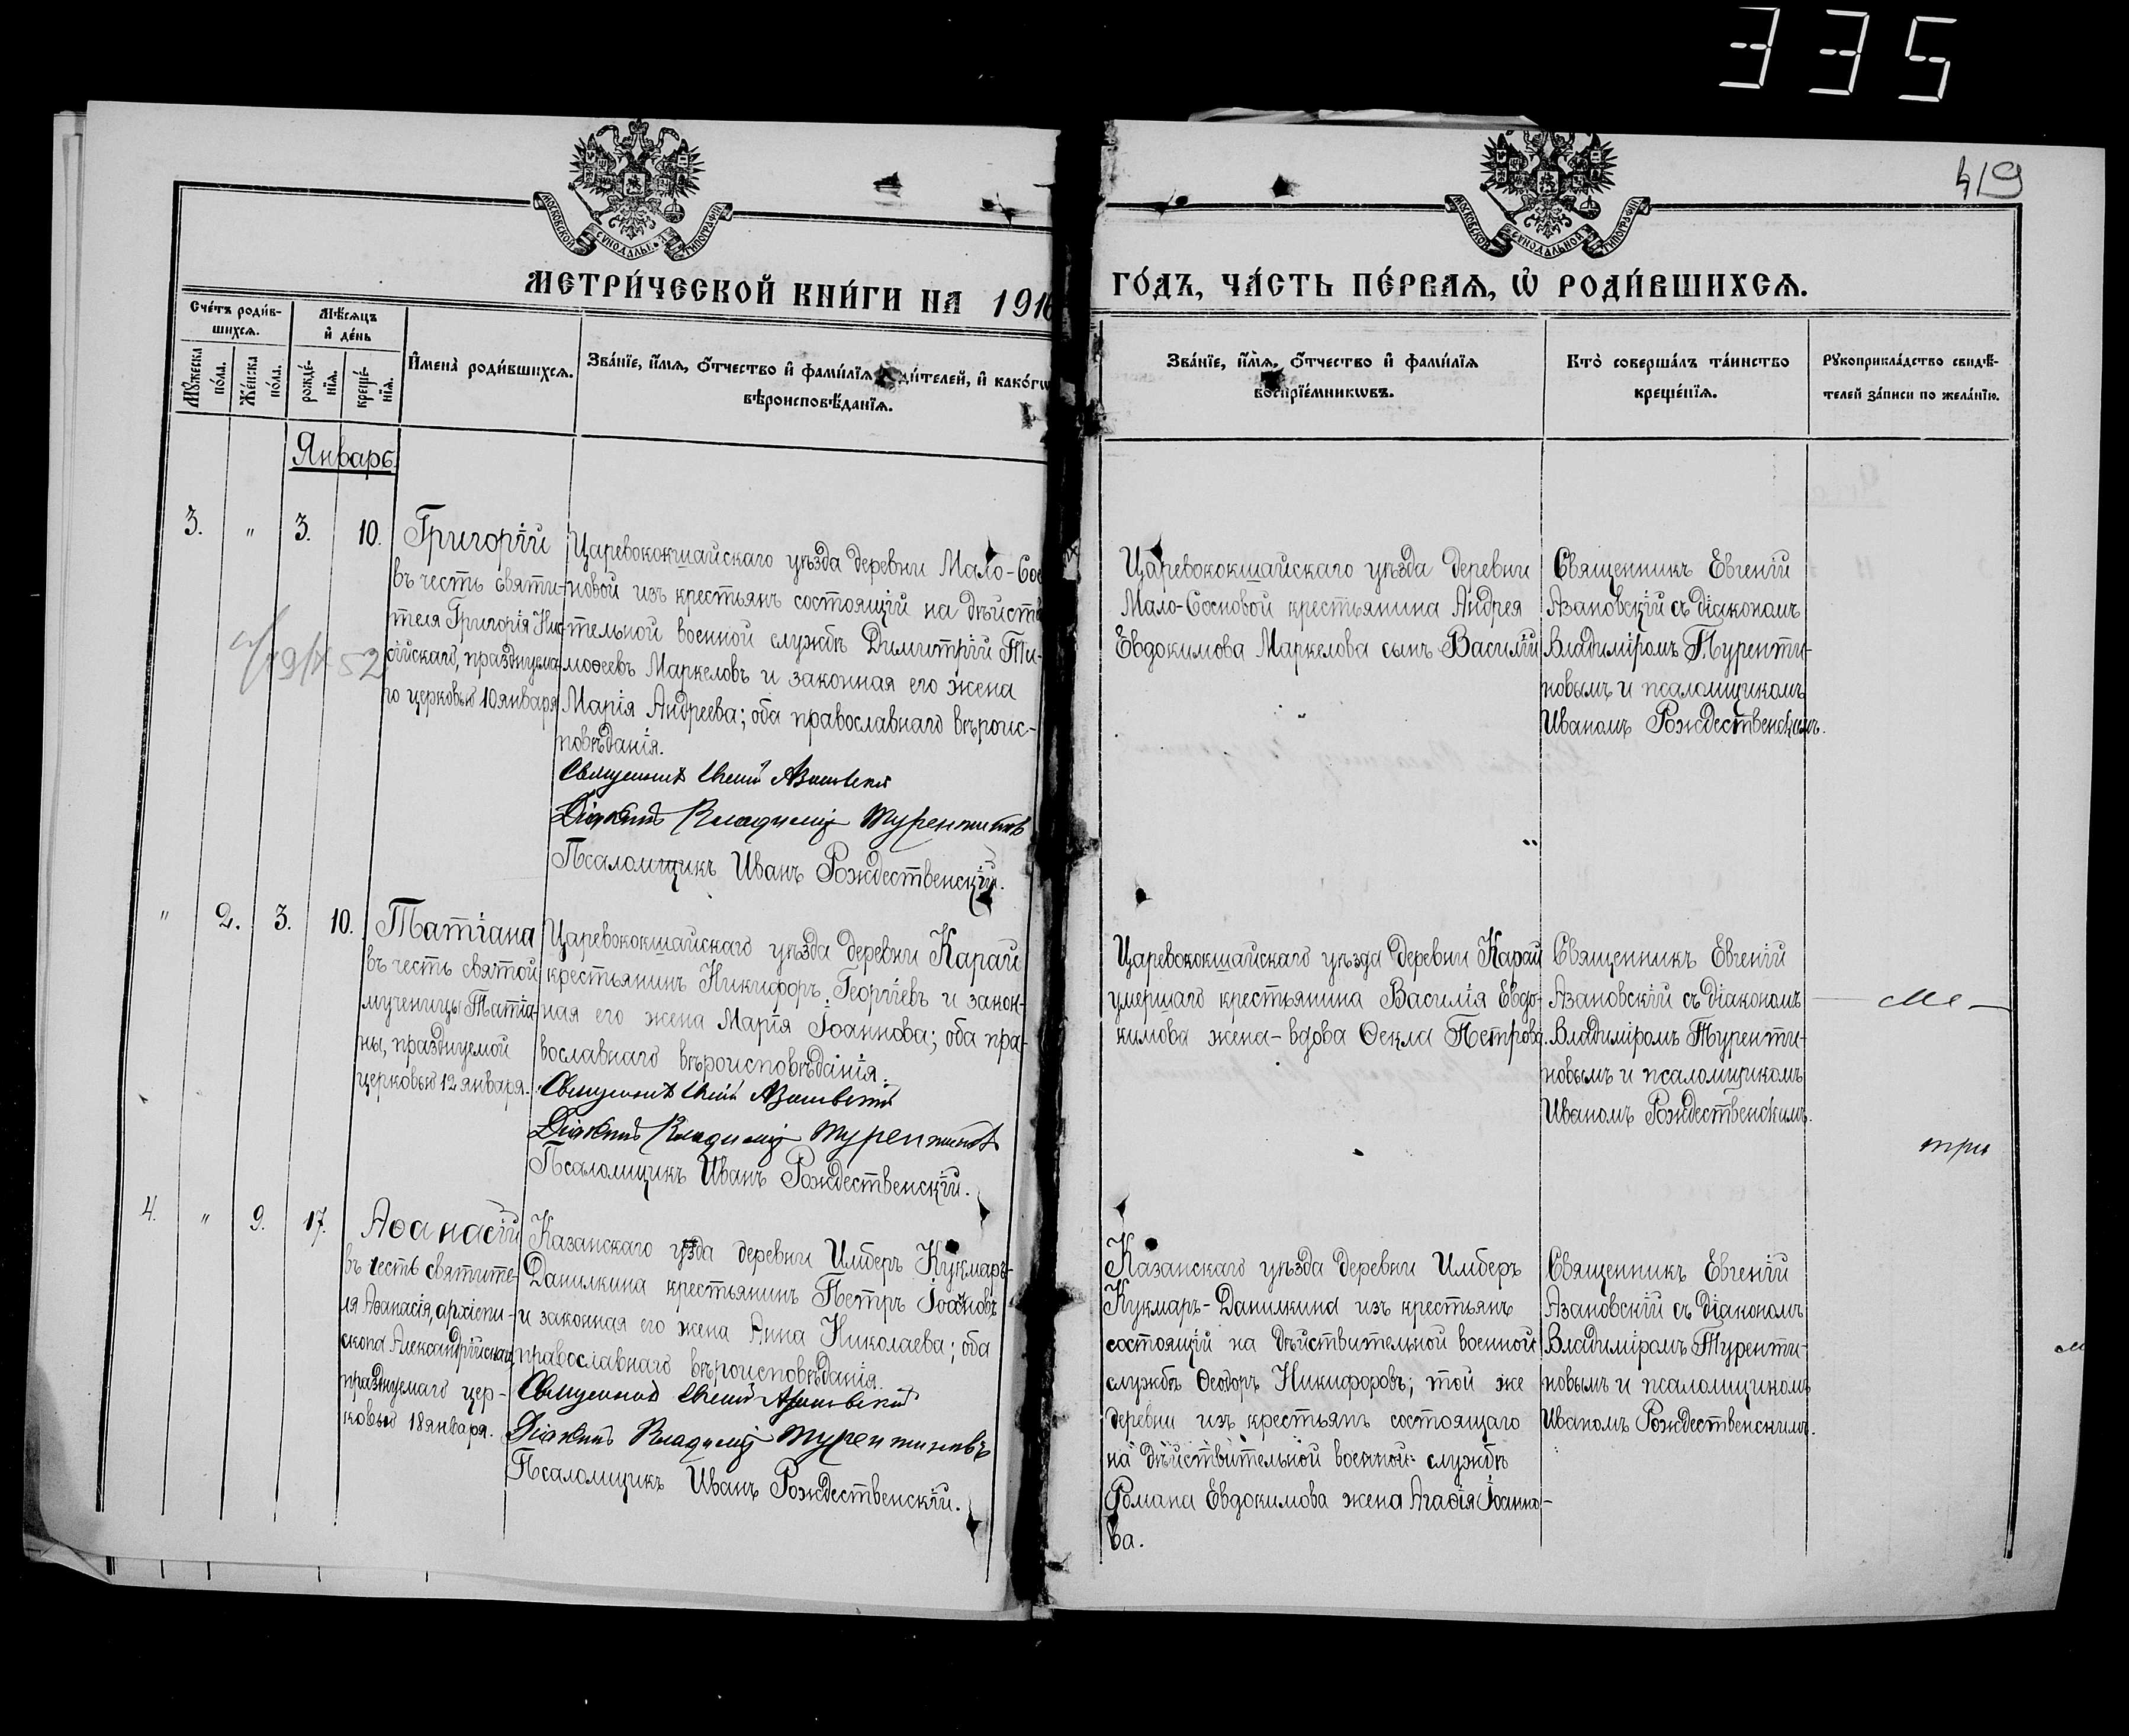 335
419
МОСКОВСКОЙ СѴНОДАЛЬНОЙ ТИПОГРАФІИ
МОСКОВСКОЙ СѴНОДАЛЬНОЙ ТИПОГРАФІИ
МЕТРИ́ЧЕСКОЙ КНИ́ГИ НА 1916
ГО́ДЪ, ЧА́СТЬ ПЕ́РВАѦ, Ѡ҆ РОДИ́ВШИХСѦ.
Сче́тъ роди́в-
шихсѧ.
Мѣ́сѧцъ
и҆ де́нь
Мꙋ́жеска
по́ла.
Же́нска
по́ла.
рожде́-
нїѧ.
креще́-
нїѧ.
И҆мена̀ роди́вшихсѧ.
Зва́нїе, и҆́мѧ, ѻ҆́тчество и҆ фами́лїѧ
вѣроисповѣ́данїѧ.
Зва́нїе, и҆́мѧ, ѻ҆́тчество и҆ фами́лїѧ
воспрїе́мникѡвъ.
Кто̀ соверша́лъ та́инство
креще́нїѧ.
Рꙋкоприкла́дство свидѣ́-
телей за́писи по жела́нїю.
Январь.
3. " 3. 10.
Григорій
въ честь святи-
теля Григорія Нис-
сійскаго, празднуема-
го церковью 10 января
Царевококшайскаго уѣзда деревни Мало-Сос
новой изъ крестьянъ состоящій на дѣйств
тельной военной службѣ Димитрій Ти-
моѳеевъ Маркеловъ и законная его жена
Марія Андреева; оба православнаго вѣроис-
повѣданія.
Священникъ Евгеній Азановскій
Діаконъ Владиміръ Турентиновъ
Псаломщикъ Иванъ Рождественскій.
Царевококшайскаго уѣзда деревни
Мало-Сосновой крестьянина Андрея
Евдокимова Маркелова сынъ Василій
Священникъ Евгеній
Азановскій съ діакономъ
Владиміромъ Туренти-
новымъ и псаломщикомъ
Иваномъ Рождественскимъ.
" 2. 3. 10.
Татіана
въ честь святой
мученицы Татіа-
ны, празднуемой
церковью 12 января.
Царевококшайскаго уѣзда деревни Карай
крестьянинъ Никифоръ Георгіевъ и закон-
ная его жена Марія Іоаннова; оба пра-
вославнаго вѣроисповѣданія.
Священникъ Евгеній Азановскій
Діаконъ Владиміръ Турентиновъ
Псаломщикъ Иванъ Рождественскій.
Царевококшайскаго уѣзда деревни Карай
умершаго крестьянина Василія Евдо-
кимова жена-вдова Ѳекла Петрова.
Священникъ Евгеній
Азановскій съ діакономъ
Владиміромъ Туренти-
новымъ и псаломщикомъ
Иваномъ Рождественскимъ.
4. " 9. 17.
Аѳанасій
въ честь святите-
ля Аѳанасія, архіепи-
скопа Александрійскаго,
празднуемаго цер-
ковью 18 января.
Казанскаго уѣзда деревни Имберъ Кукмаръ-
Данилкина крестьянинъ Петръ Іоанновъ
и законная его жена Анна Николаева; оба
православнаго вѣроисповѣданія.
Священникъ Евгеній Азановскій
Діаконъ Владиміръ Турентиновъ
Псаломщикъ Иванъ Рождественскій.
Казанскаго уѣзда деревни Имберъ
Кукмаръ-Данилкина изъ крестьянъ
состоящій на дѣйствительной военной
службѣ Ѳеодоръ Никифоровъ; той же
деревни изъ крестьянъ состоящаго
на дѣйствительной военной службѣ
Романа Евдокимова жена Агаѳія Іоанно-
ва.
Священникъ Евгеній
Азановскій съ діакономъ
Владиміромъ Туренти-
новымъ и псаломщикомъ
Иваномъ Рождественскимъ.